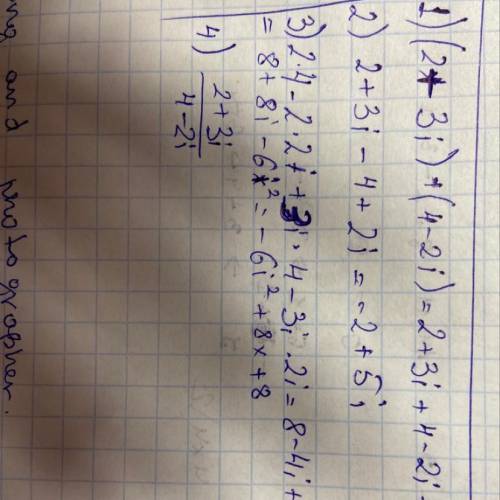 1) (2+3i)+(4-2i)=2+3i+4-2i
2) 2+3i-4+2i=-2+5i
3) 2·4-2·2i+3i·4-3i·2i=8-4i+
=8+8i-6i²=-6i²+8x+8
4) \frac{2+3i}{4-2i}
and photographer.